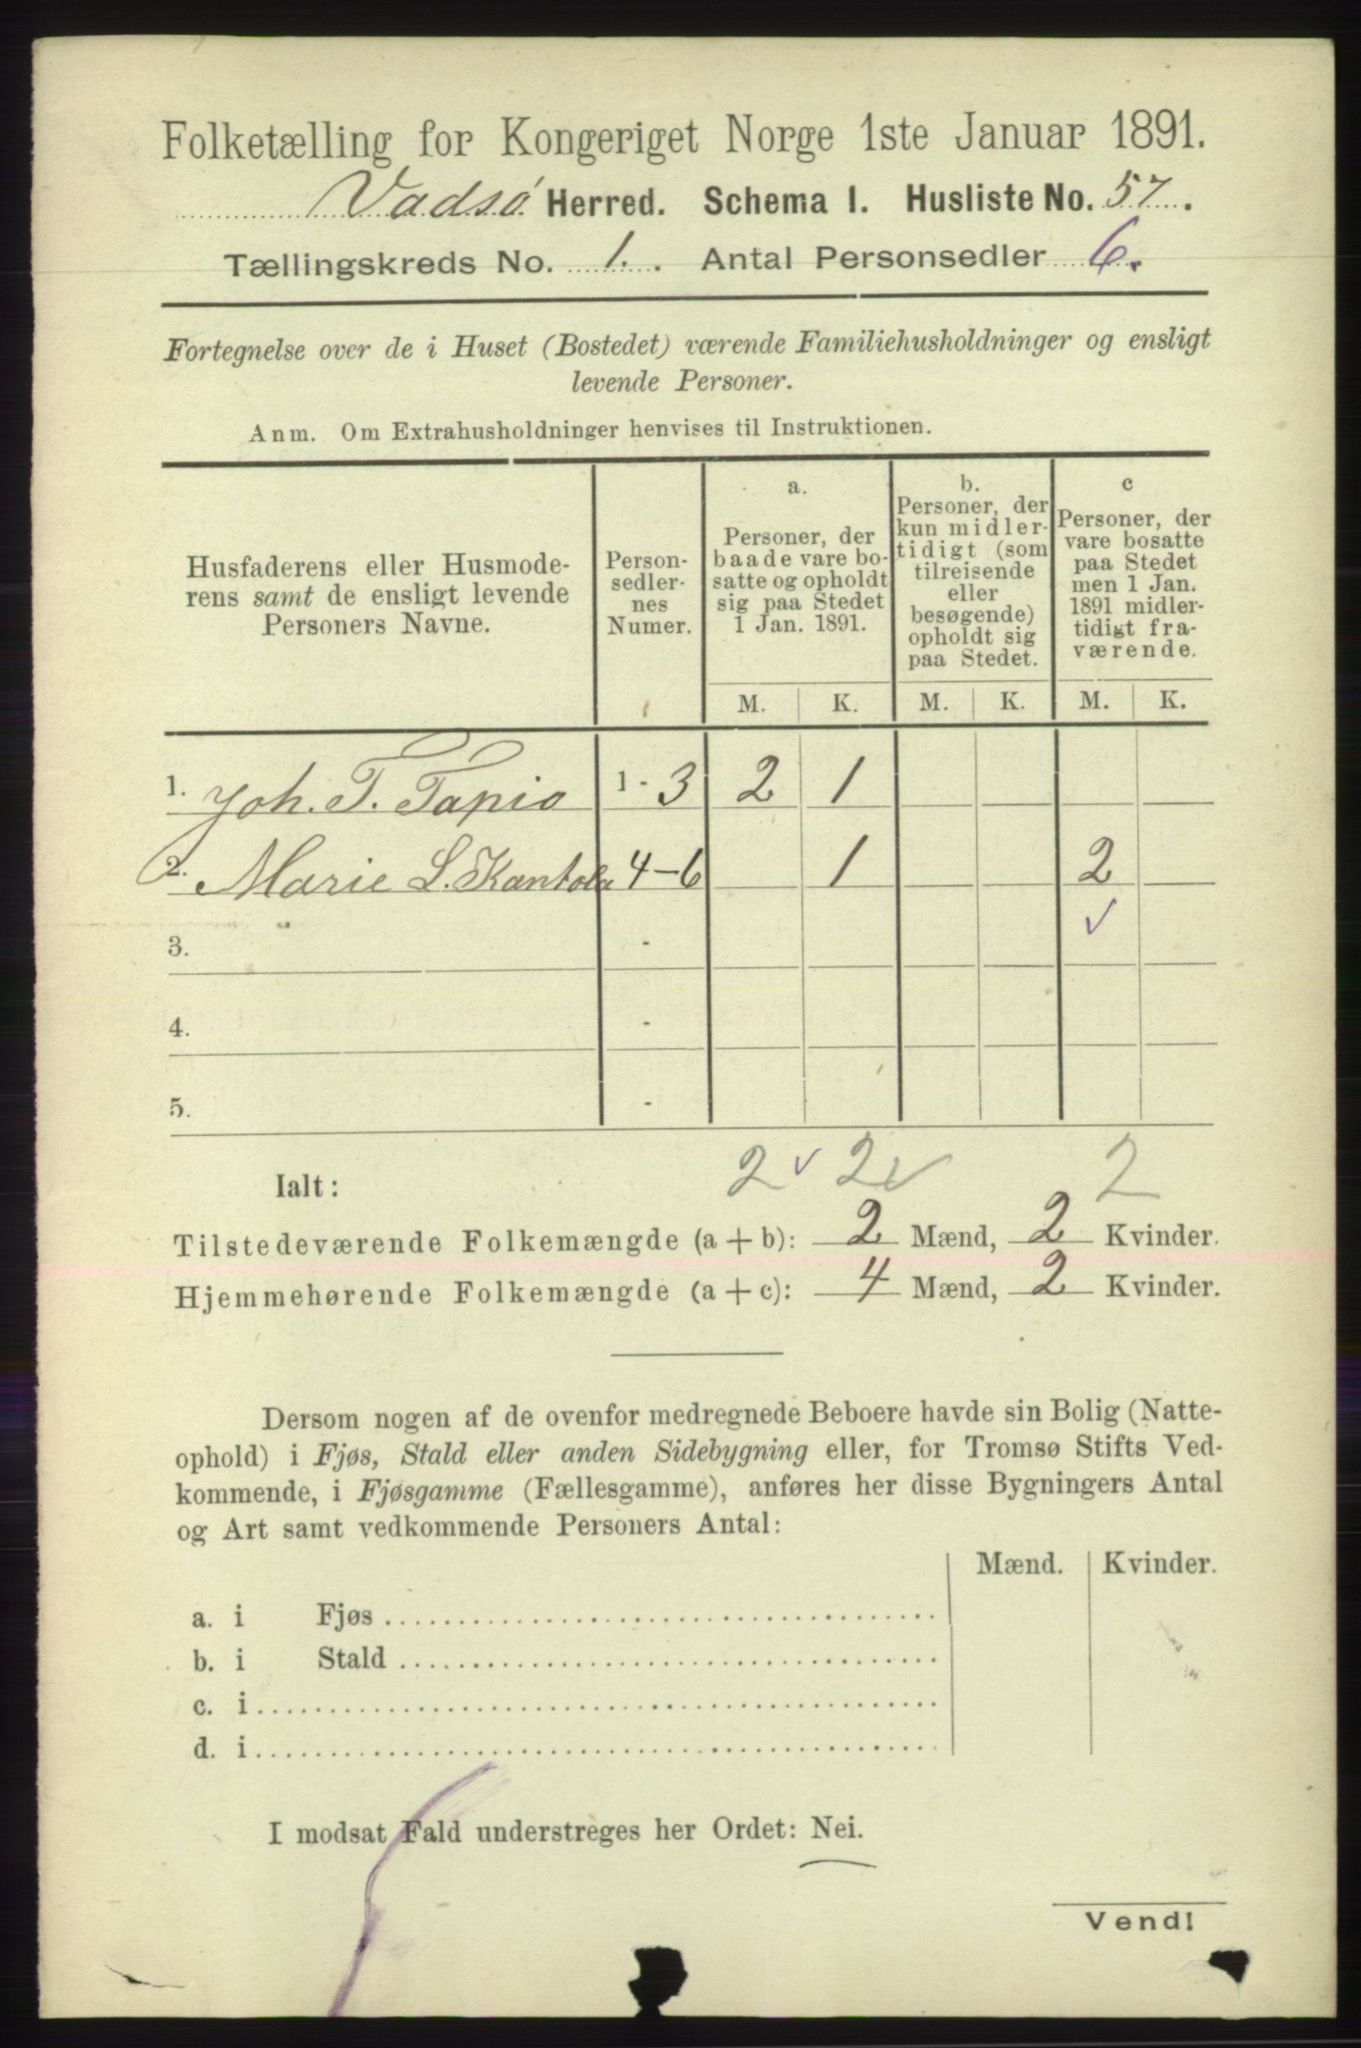 Folketælling for Kongeriget Norge 1ste Januar 1891.
Vadsø Herred. Schema I. Husliste No. 57.
Tællingskreds No. 1. Antal Personsedler 6.
Fortegnelse over de i Huset (Bostedet) værende Familiehusholdninger og ensligt
levende Personer.
Anm. Om Extrahusholdninger henvises til Instruktionen.
Husfaderens eller Husmode-
rens samt de ensligt levende
Personers Navne.
Person-
sedler-
nes
Numer.
a.
Personer, der
baade vare bo-
satte og opholdt
sig paa Stedet
1 Jan. 1891.
b.
Personer, der
kun midler-
tidigt (som
tilreisende
eller
besøgende)
opholdt sig
paa Stedet.
c
Personer, der
vare bosatte
paa Stedet
men 1 Jan.
1891 midler-
tidigt fra-
værende.
M. K. M. K. M. K.
1. Joh. T. Tapio 1-3 2 1
2. Marie L. Kantola 4-6 1 2
3. -
4. -
5. -
Ialt: 2 2 2
Tilstedeværende Folkemængde (a + b): 2 Mænd, 2 Kvinder.
Hjemmehørende Folkemængde (a + c): 4 Mænd, 2 Kvinder.
Dersom nogen af de ovenfor medregnede Beboere havde sin Bolig (Natte-
ophold) i Fjøs, Stald eller anden Sidebygning eller, for Tromsø Stifts Ved-
kommende, i Fjøsgamme (Fællesgamme), anføres her disse Bygningers Antal
og Art samt vedkommende Personers Antal:
Mænd. Kvinder.
a. i Fjøs
b. i Stald
c. i
d. i
I modsat Fald understreges her Ordet: Nei.
Vend!